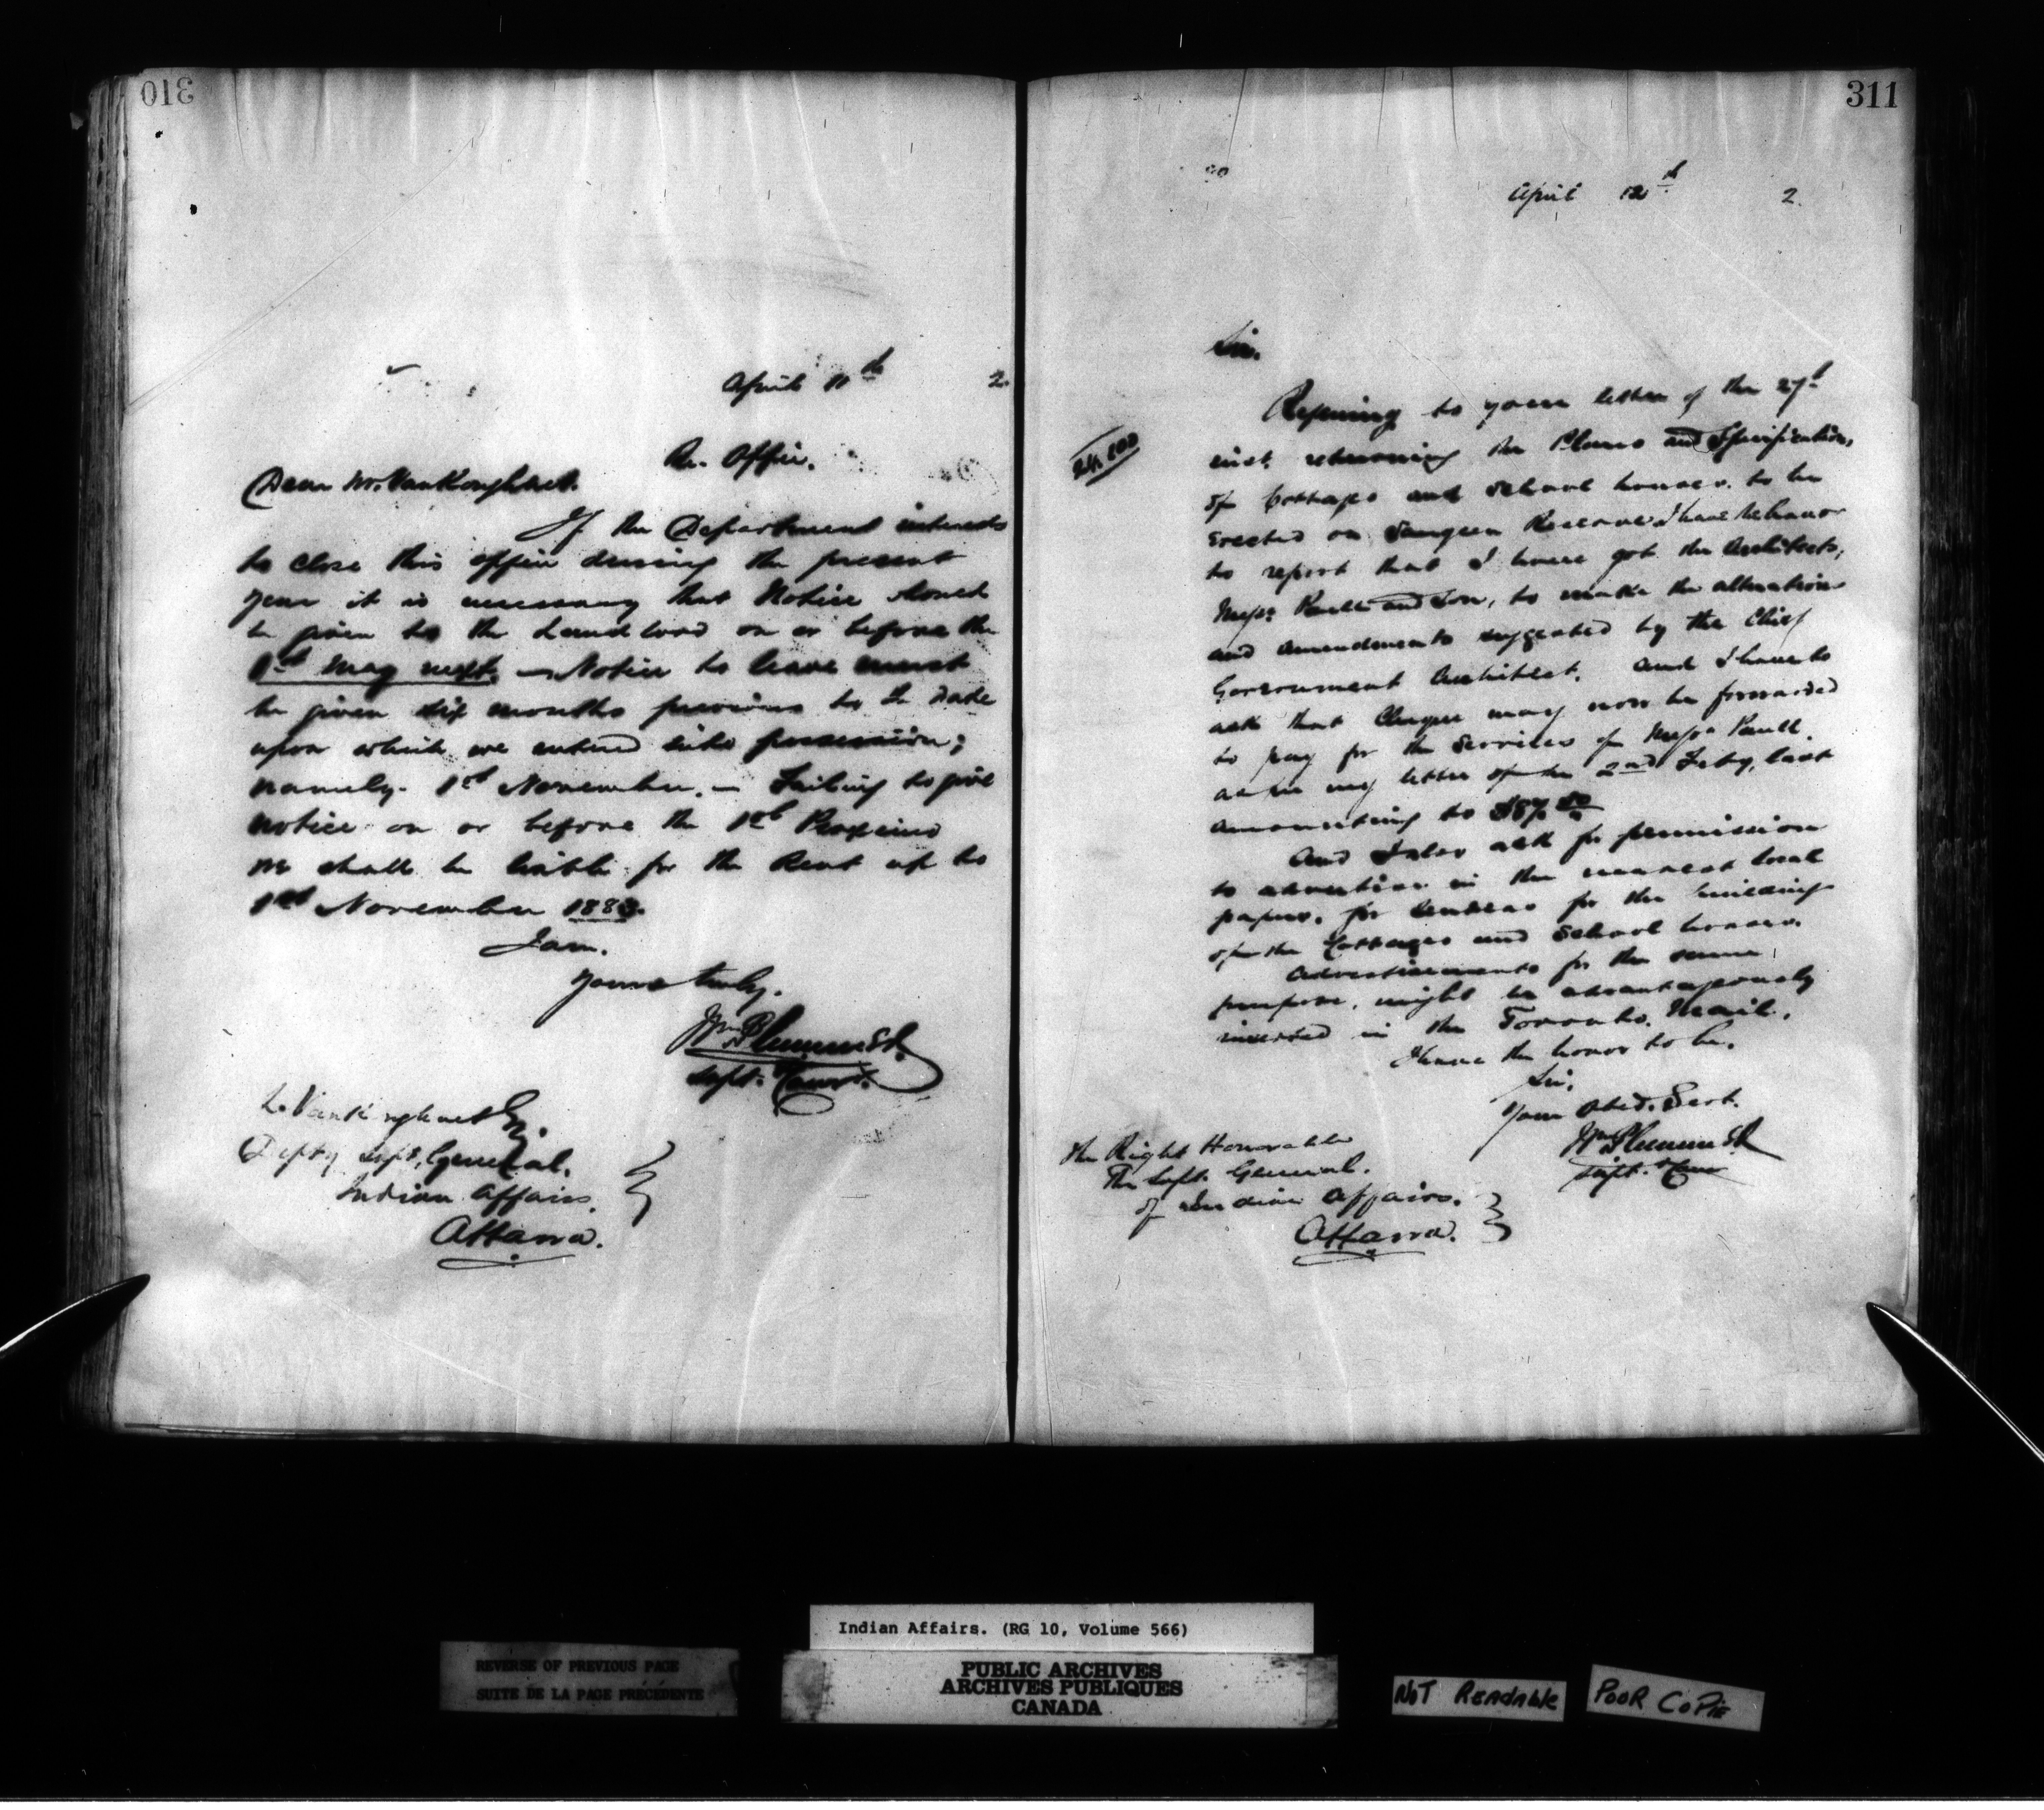 310
April 11th 2.
Re. Office.
Dear Mr. VanKoughnet.
If the Department intends
to close this office during the present
year it is necessary that Notice should
be given to the Landlord on or before the
1st May next. — Notice to leave must
be given six months previous to the date
upon which we entered into possession;
namely. 1st November. — Failing to give
notice on or before the 1st Proximo
we shall be liable for the Rent up to
1st November 1883.
I am.
Yours truly.
Wm Plummer
Supt. & Comr.
L. VanKoughnet Esq.
Depty Supt. General.
Indian Affairs.
Ottawa.
311
April 12th 2.
Sir.
Referring to your letter of the 27th
inst. returning the Plans and Specification,
of Cottages and School houses. to be
Erected on Saugeen Reserve I have the honor
to report that I have got the Architects,
Messrs Paull and Son, to make the alterations
and amendments suggested by the Chief
Government Architect. and I have to
ask that Cheque may now be forwarded
to pay for the Services of Messrs Paull.
as per my letter of the 2nd Feby, last
amounting to $87.50
And I also ask for permission
to advertise in the nearest local
papers. for tenders for the building
of the Cottages and School houses.
Advertisements for the same
purpose, might be advantageously
inserted in the Toronto. Mail.
I have the honor to be.
Sir.
Your Obed. Servt.
Wm Plummer
Supt. & Comr
The Right Honorable
The Supt. General.
of Indian Affairs.
Ottawa.
Indian Affairs. (RG 10, Volume 566)
REVERSE OF PREVIOUS PAGE
SUITE DE LA PAGE PRÉCÉDENTE
PUBLIC ARCHIVES
ARCHIVES PUBLIQUES
CANADA
NOT READABLE
POOR COPIE